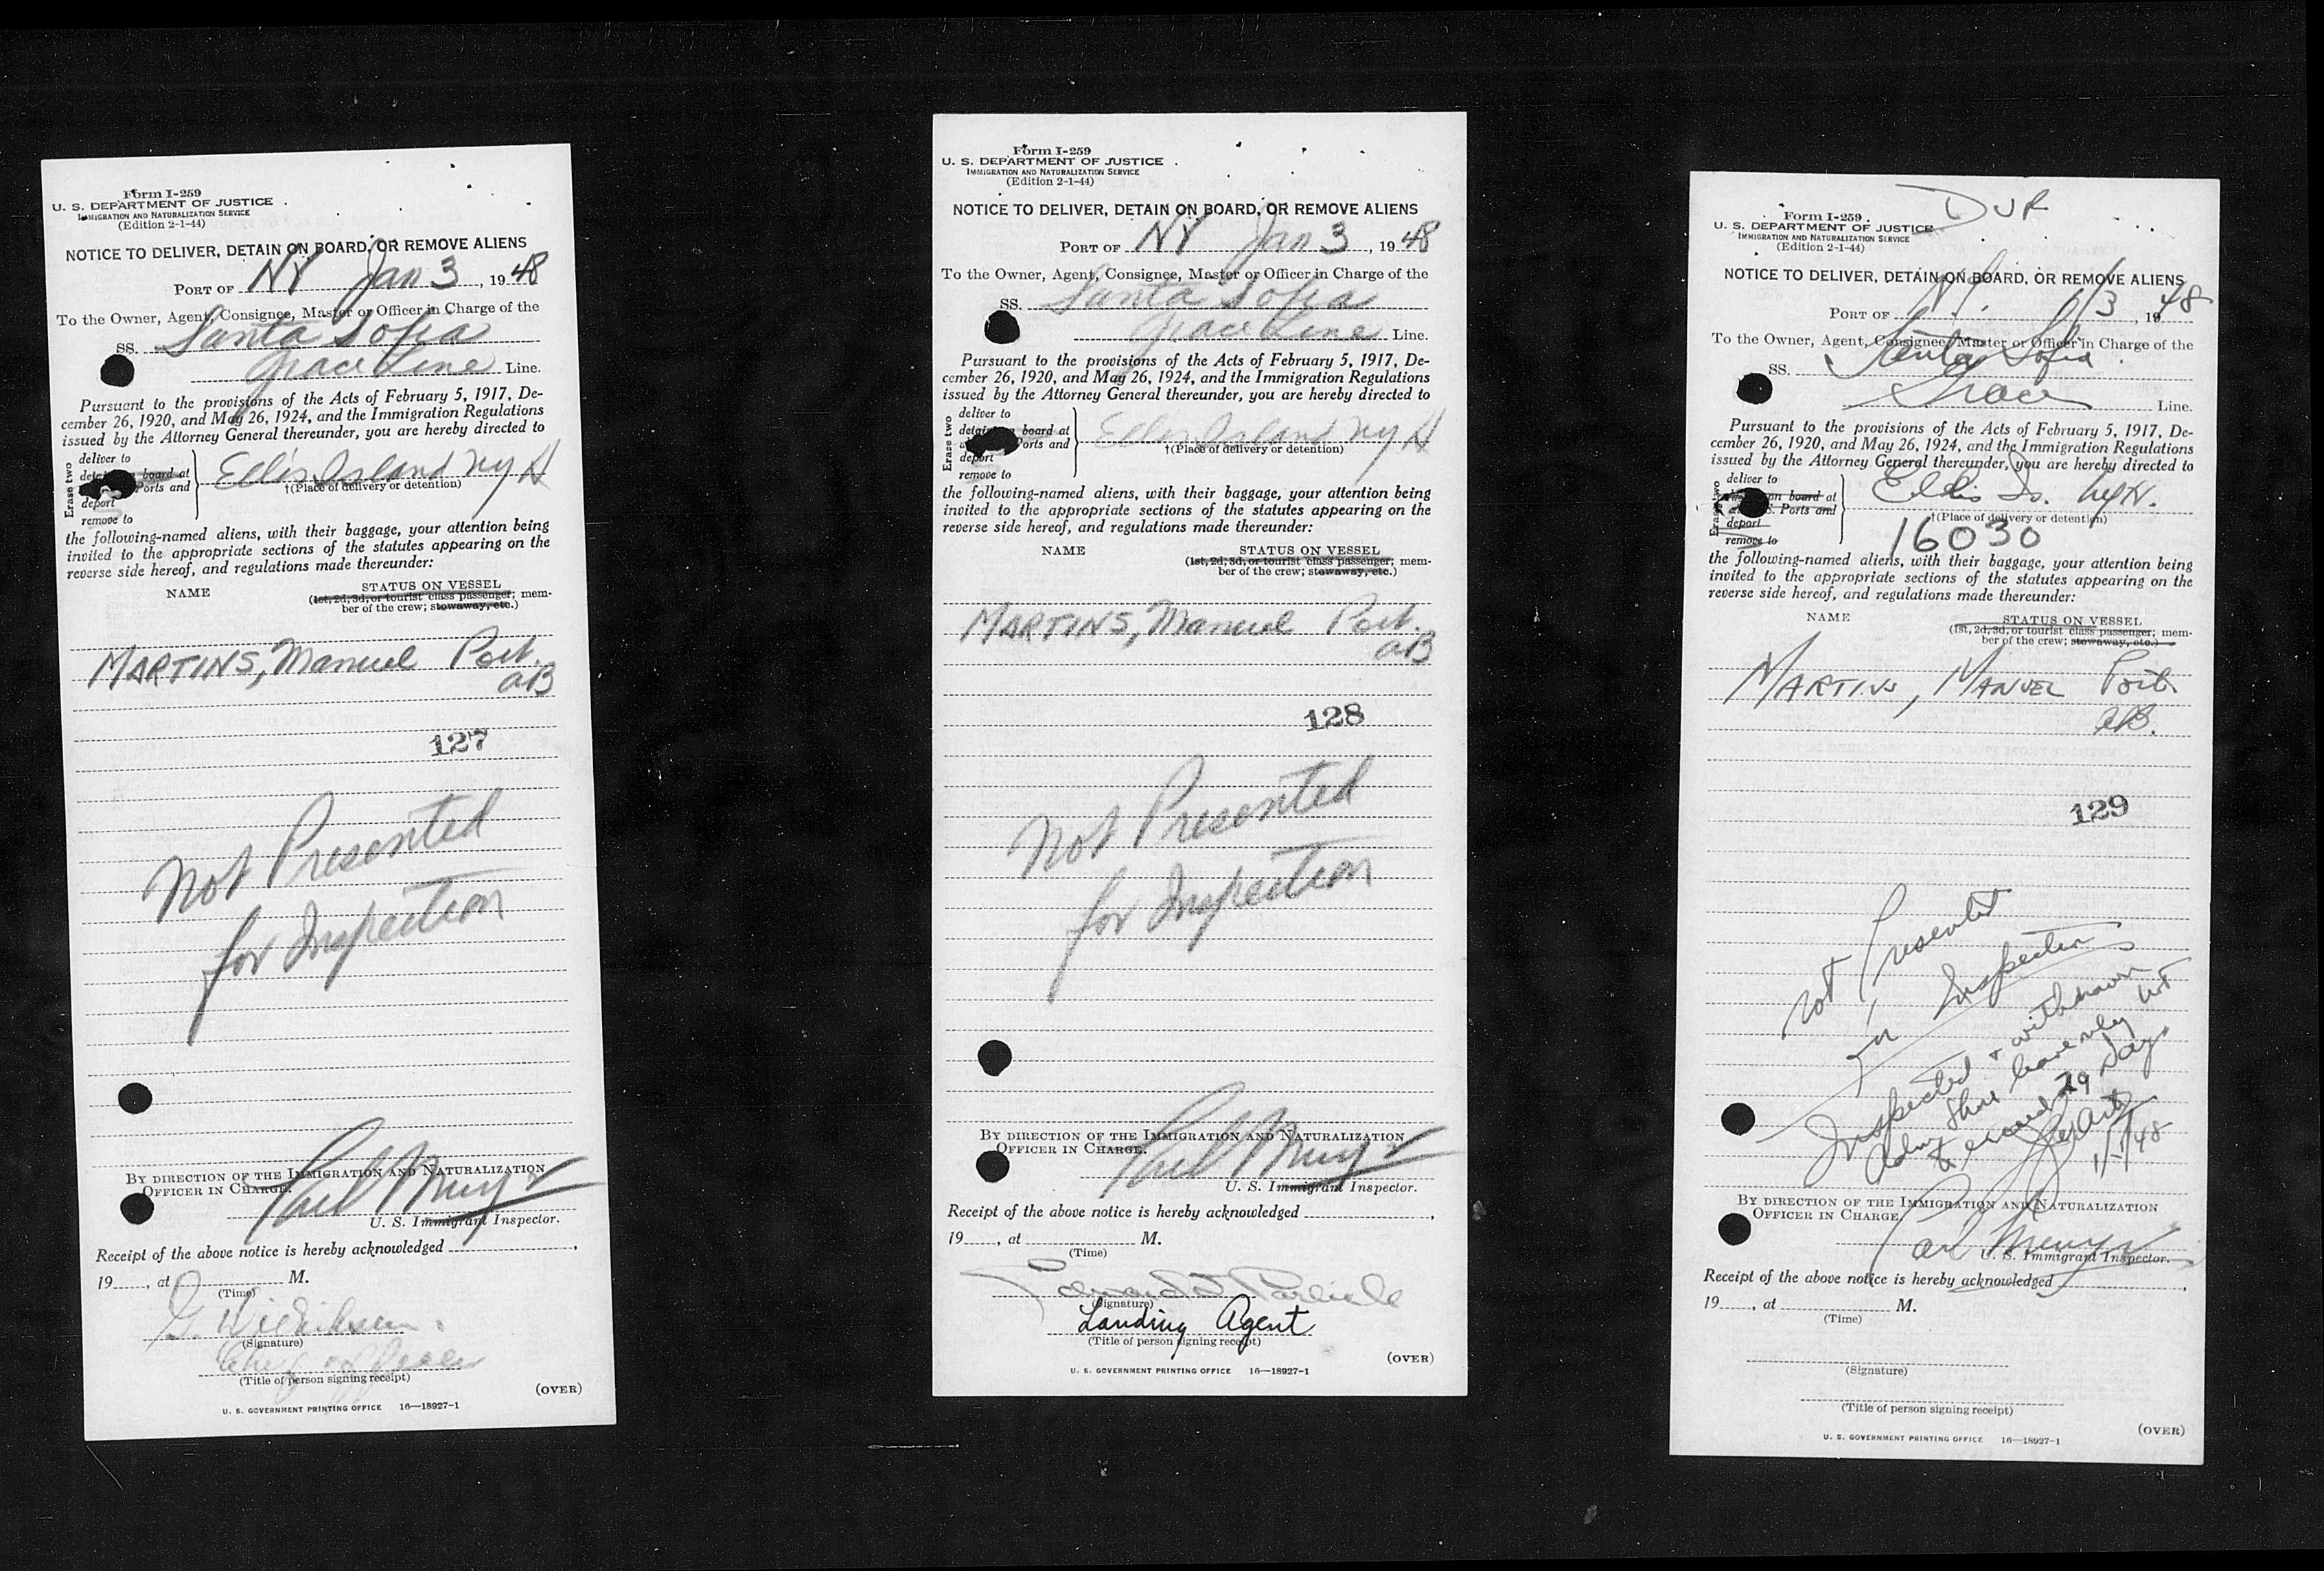 Form I-259
U. S. DEPARTMENT OF JUSTICE
IMMIGRATION AND NATURALIZATION SERVICE
(Edition 2-1-44)
NOTICE TO DELIVER, DETAIN ON BOARD, OR REMOVE ALIENS
PORT OF NY Jan 3, 1948
To the Owner, Agent, Consignee, Master or Officer in Charge of the
SS. Santa Sofia
Grace Line Line.
Pursuant to the provisions of the Acts of February 5, 1917, De-
cember 26, 1920, and May 26, 1924, and the Immigration Regulations
issued by the Attorney General thereunder, you are hereby directed to
Erase two
deliver to
board at
Ports and
deport
remove to
Ellis Island NYH
†(Place of delivery or detention)
the following-named aliens, with their baggage, your attention being
invited to the appropriate sections of the statutes appearing on the
reverse side hereof, and regulations made thereunder:
NAME STATUS ON VESSEL
(1st, 2d, 3d, or tourist class passenger; mem-
ber of the crew; stowaway, etc.)
MARTINS, Manuel Port.
AB
127
Not Presented
for Inspection
BY DIRECTION OF THE IMMIGRATION AND NATURALIZATION
OFFICER IN CHARGE.
U. S. Immigrant Inspector.
Receipt of the above notice is hereby acknowledged
19 , at M.
(Time)
(Signature)
Chief Officer
(Title of person signing receipt)
(OVER)
U. S. GOVERNMENT PRINTING OFFICE 16—18927-1
Form I-259
U. S. DEPARTMENT OF JUSTICE
IMMIGRATION AND NATURALIZATION SERVICE
(Edition 2-1-44)
NOTICE TO DELIVER, DETAIN ON BOARD, OR REMOVE ALIENS
PORT OF NY Jan 3, 1948
To the Owner, Agent, Consignee, Master or Officer in Charge of the
SS. Santa Sofia
Grace Line Line.
Pursuant to the provisions of the Acts of February 5, 1917, De-
cember 26, 1920, and May 26, 1924, and the Immigration Regulations
issued by the Attorney General thereunder, you are hereby directed to
Erase two
deliver to
board at
Ports and
deport
remove to
Ellis Island NYH
†(Place of delivery or detention)
the following-named aliens, with their baggage, your attention being
invited to the appropriate sections of the statutes appearing on the
reverse side hereof, and regulations made thereunder:
NAME STATUS ON VESSEL
(1st, 2d, 3d, or tourist class passenger; mem-
ber of the crew; stowaway, etc.)
MARTINS, Manuel Port.
AB
128
Not Presented
for Inspection
BY DIRECTION OF THE IMMIGRATION AND NATURALIZATION
OFFICER IN CHARGE.
U. S. Immigrant Inspector.
Receipt of the above notice is hereby acknowledged
19 , at M.
(Time)
(Signature)
Landing Agent
(Title of person signing receipt)
(OVER)
U. S. GOVERNMENT PRINTING OFFICE 16—18927-1
Form I-259
U. S. DEPARTMENT OF JUSTICE
IMMIGRATION AND NATURALIZATION SERVICE
(Edition 2-1-44)
NOTICE TO DELIVER, DETAIN ON BOARD, OR REMOVE ALIENS
PORT OF N.Y. 1/3, 1948
To the Owner, Agent, Consignee, Master or Officer in Charge of the
SS. Santa Sofia
Grace Line.
Pursuant to the provisions of the Acts of February 5, 1917, De-
cember 26, 1920, and May 26, 1924, and the Immigration Regulations
issued by the Attorney General thereunder, you are hereby directed to
Erase two
deliver to
on board at
S. Ports and
deport
remove to
Ellis Is. NYH.
†(Place of delivery or detention)
16030
the following-named aliens, with their baggage, your attention being
invited to the appropriate sections of the statutes appearing on the
reverse side hereof, and regulations made thereunder:
NAME STATUS ON VESSEL
(1st, 2d, 3d, or tourist class passenger; mem-
ber of the crew; stowaway, etc.)
MARTINS, MANUEL Port.
AB.
129
Not Presented
for Inspection
Inspected & withdrawn
shore leave only not
to exceed 29 days
BY DIRECTION OF THE IMMIGRATION AND NATURALIZATION
OFFICER IN CHARGE
U. S. Immigrant Inspector.
Receipt of the above notice is hereby acknowledged
19 , at M.
(Time)
(Signature)
(Title of person signing receipt)
(OVER)
U. S. GOVERNMENT PRINTING OFFICE 16—18927-1